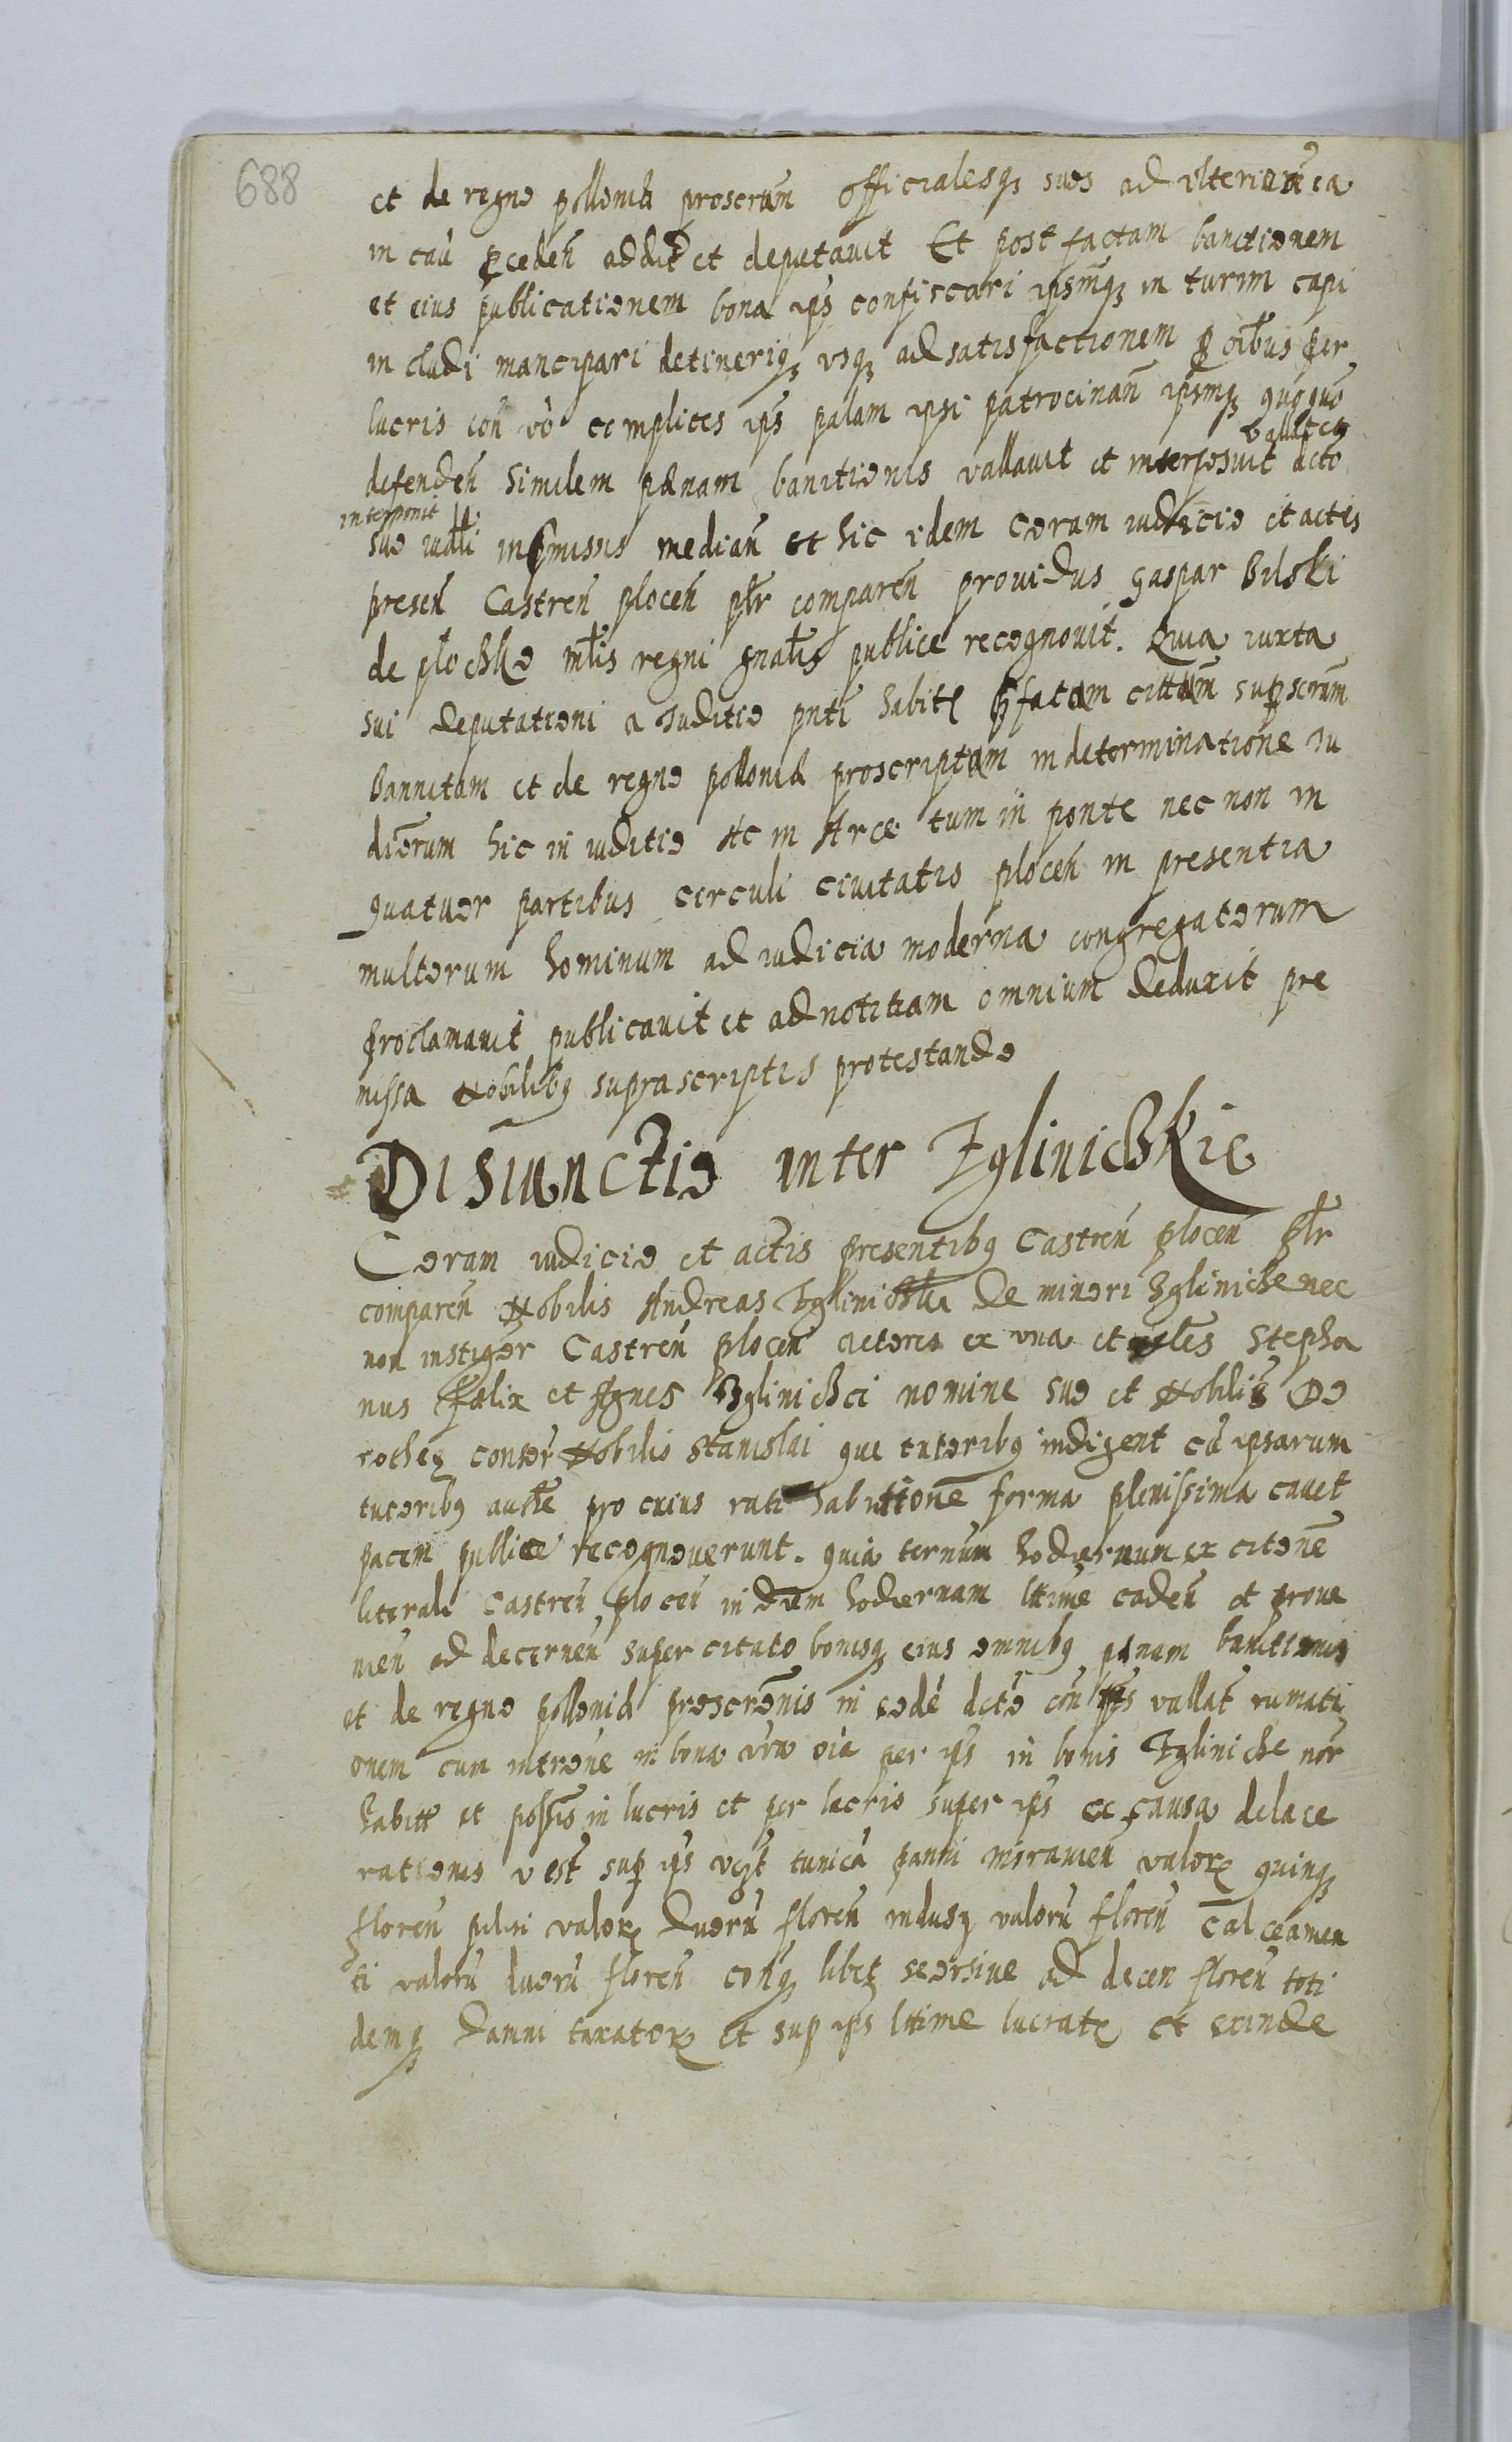 688
et de regno polloniæ proscrum̃ officialesq₃ suos ad vlteriora ea
in cau p̱cedeñ addit et deputauit Et post factam banitionem
et eius publicationem bona ips̃ confiscari ipsumq₃ in turim capi
in cludi mancipari detineriq₃ vsq₃ ad satisfactionem p̱ oib̃us per
lucris coñ vo complices ips̃ palam ipsi patrocinañ ipsmq₃ quoquo
vallat eg
defendeñ similem pænam banitionis vallauit et interposuit dcto
interponit
suo iudli in p̱missis mediañ et hic idem Coram iudicio et actis
preseñ Castreñ ploceñ plr̃ compareñ prouidus gaspar Bilski
de plochko mlis̃ regni gnalis̃ publice recognouit. Quia iuxta
sui deputationi a Juditio pnti habite p̱fatam citatam sup̱scram̃
bannitam et de regno polloniæ proscriptam in determinatione Ju
diciorum hic in iuditio Ac in Arce tum in ponte nec non in
quatuor partibus circuli ciuitatis ploceñ in presentia
multorum hominum ad iudicia moderna congregatorum
proclamauit publicauit et ad notitiam omnium deduxit pre
missa Nobilibq suprascriptis protestando
Disiunctio inter Zglinichkie
Coram iudicio et actis presentibq Castreñ ploceñ plr̃
compareñ Nobilis Andreas Zglinichki de minori Zgliniche nec
non instigor Castreñ ploceñ actores ex vna et nbles Stepha
nus Fælix et Agnes Zglinichci nomine suo et Nobilis Do
rotheę consor Nobilis Stanislai que tutoribq indigent cũ ipsarum
tutoribq authe pro cuius rati habitione forma plenissima cauet
pacem publice recognouerunt. quia ternum hodiernum ex citone
literali Castreñ ploceñ in diem hodiernam lttime cadeñ et proue
nieñ ad decerneñ super citato bonisq₃ eius omnibq pænam banitionis
et de regno polloniæ proscronis in sede dcto coñ ips̃ vallat rumati
onem cum introne in bona vra oia per ips̃ in bonis Zgliniche nor
habitt et possis in lucris et per lucris super ips̃ ex causa delace
rationis vest sup̱ ips̃ vcz̃t tunica panni misramen valor quinq₃
floreñ pilei valor duorũ floreñ indusy valorũ floreñ Calceamen
ti valorũ duorũ floreñ conq₃ libet̃ seorsiue ad decen floreñ toti
demq₃ damni taxator et sup ips̃ lttime lucrate et exinde